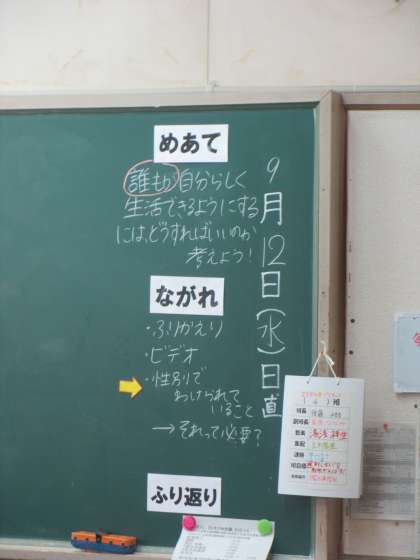 9月12日(水)日直
めあて
誰もが自分らしく
生活できるようにする
には、どうすればいいのか
考えよう!
ながれ
・ふりかえり
・ビデオ
・性別で
わけられて
いること
→それって必要?
ふり返り
班長
副班長